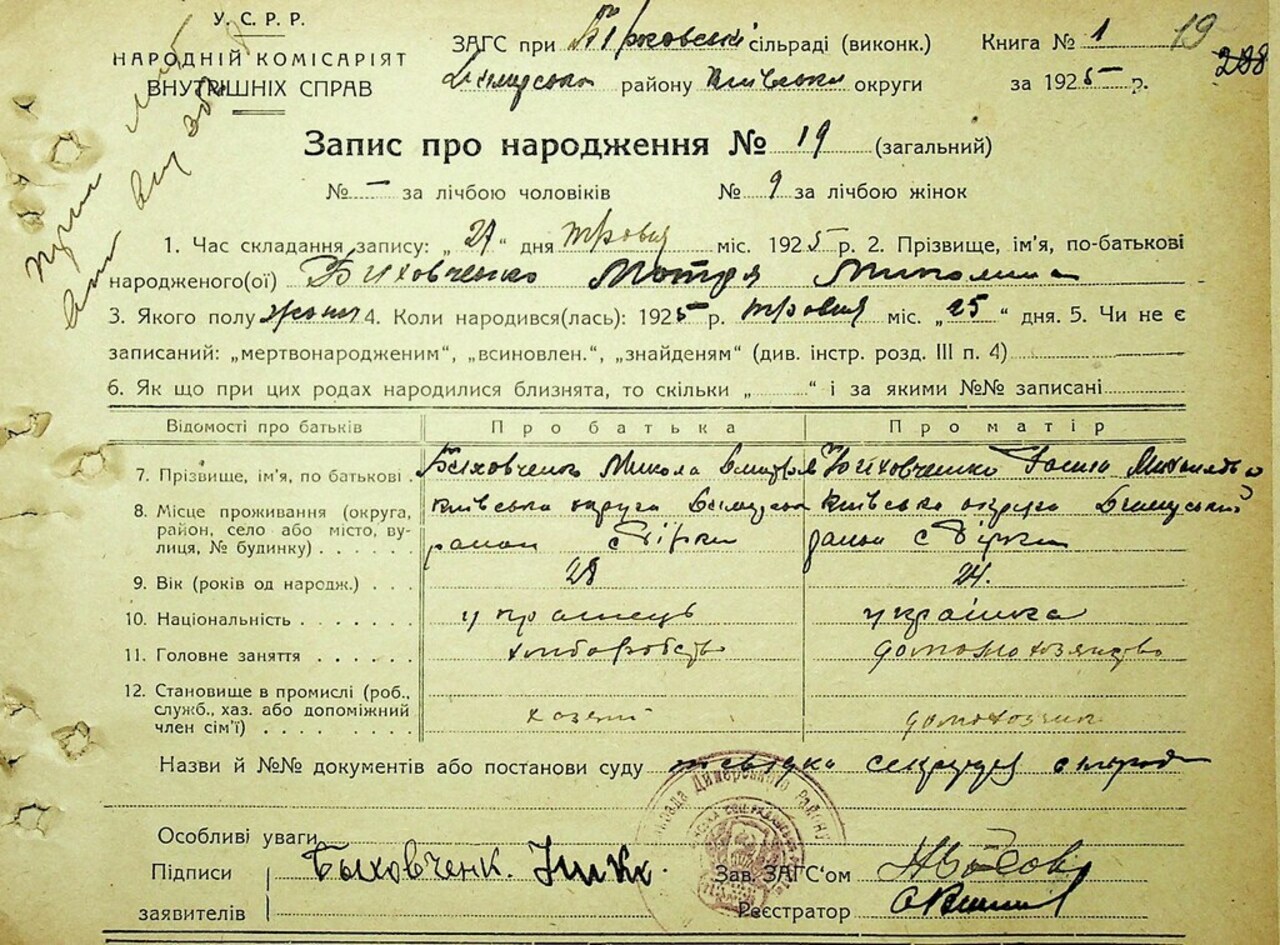 У. С. Р. Р.
НАРОДНІЙ КОМІСАРІЯТ
ВНУТРІШНІХ СПРАВ
ЗАГС при сільраді (виконк.)
району Київсько округи
Книга № 1
19
288
за 1925 р.
Запис про народження № 19 (загальний)
№ – за лічбою чоловіків № 9 за лічбою жінок
1. Час складання запису: „27“ дня травня міс. 1925 р. 2. Прізвище, ім'я, по-батькові
народженого(ої) Биховченко Мотря Миколина
3. Якого полу жіноч 4. Коли народився(лась): 1925 р. травня міс. „25“ дня. 5. Чи не є
записаний: „мертвонародженим“, „всиновлен.“, „знайденям“ (див. інстр. розд. III п. 4)
6. Як що при цих родах народилися близнята, то скільки „ “ і за якими №№ записані
Відомості про батьків Про батька Про матір
7. Прізвище, ім'я, по батькові . Биховченко Микола Биховченко
8. Місце проживання (округа,
район, село або місто, ву-
лиця, № будинку) . . . . .
Київська округа
район с Бірки
Київська округа
район с Бірки
9. Вік (років од народж.) . . . 28 24.
10. Національність . . . . . . . українець українка
11. Головне заняття . . . . . . хліборобство домашнє хозяйство
12. Становище в промислі (роб.,
служб., хаз. або допоміжний
член сім'ї) . . . . . . . . . хозяїн
Назви й №№ документів або постанови суду
Димерського Району
Особливі уваги
Підписи
заявителів
Быховченк.
Зав. ЗАГС'ом
Реєстратор